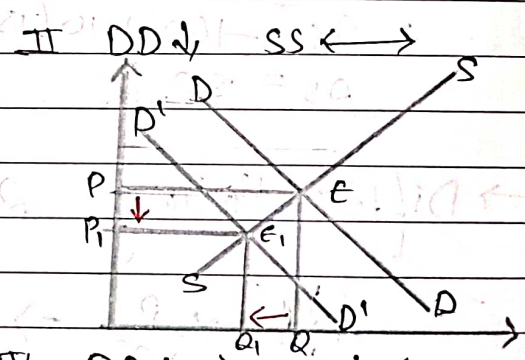 II DD↓, SS ↔
S
D
D'
P E
P₁ E₁
S
D' D
Q₁ Q